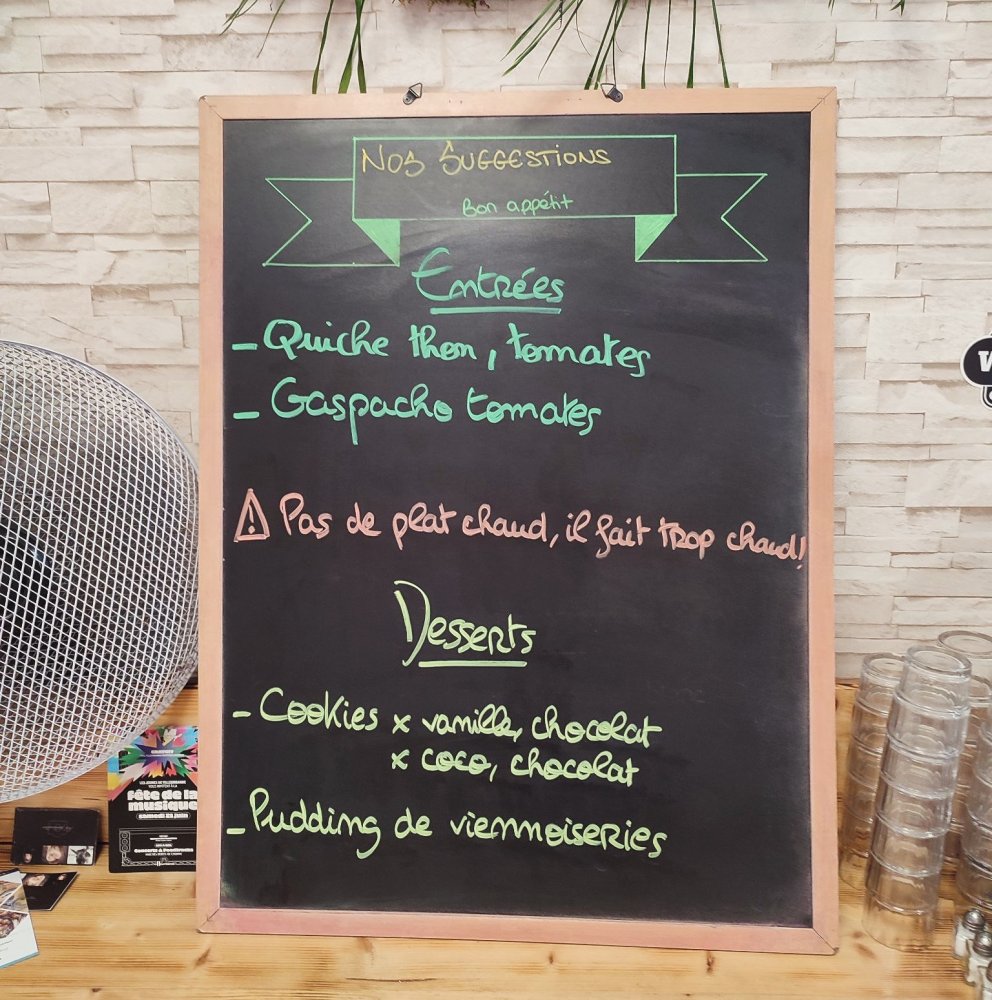 Nos Suggestions
Bon appétit
Entrées
- Quiche thon, tomates
- Gaspacho tomates
⚠ Pas de plat chaud, il fait trop chaud!
Desserts
- Cookies x vanille, chocolat
x coco, chocolat
- Pudding de viennoiseries
Fête de la
musique
samedi 21 juin